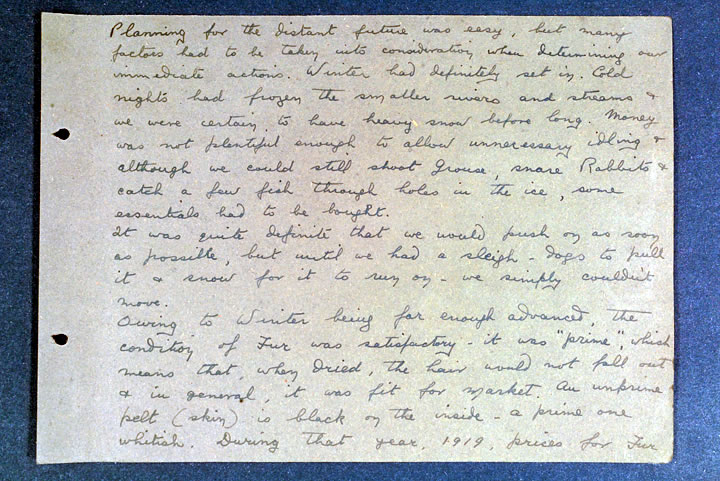 Planning for the distant future was easy, but many
factors had to be taken into consideration when determining our
immediate actions. Winter had definitely set in. Cold
nights had frozen the smaller rivers and streams &
we were certain to have heavy snow before long. Money
was not plentiful enough to allow unnecessary idling &
although we could still shoot Grouse, snare Rabbits &
catch a few fish through holes in the ice, some
essentials had to be bought.
It was quite definite that we would push on as soon
as possible, but until we had a sleigh - dogs to pull
it & snow for it to run on - we simply couldn't
move.
Owing to Winter being far enough advanced, the
condition of Fur was satisfactory - it was "prime", which
means that, when dried, the hair would not fall out
& in general, it was fit for market. An unprime
pelt (skin) is black on the inside - a prime one
whitish. During that year, 1919, prices for Fur